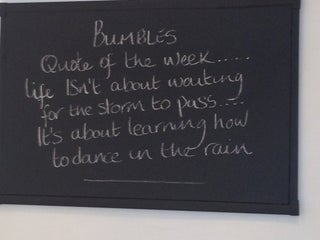 BUMBLES
Quote of the week.....
life ISn't about waiting
for the storm to pass....
It's about learning how
to dance in the rain